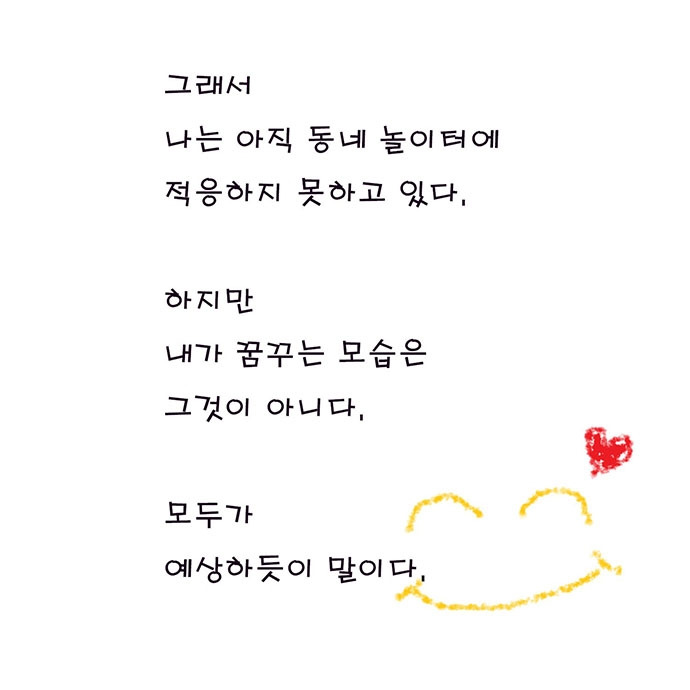 그래서
나는 아직 동네 놀이터에
적응하지 못하고 있다.
하지만
내가 꿈꾸는 모습은
그것이 아니다.
모두가
예상하듯이 말이다.